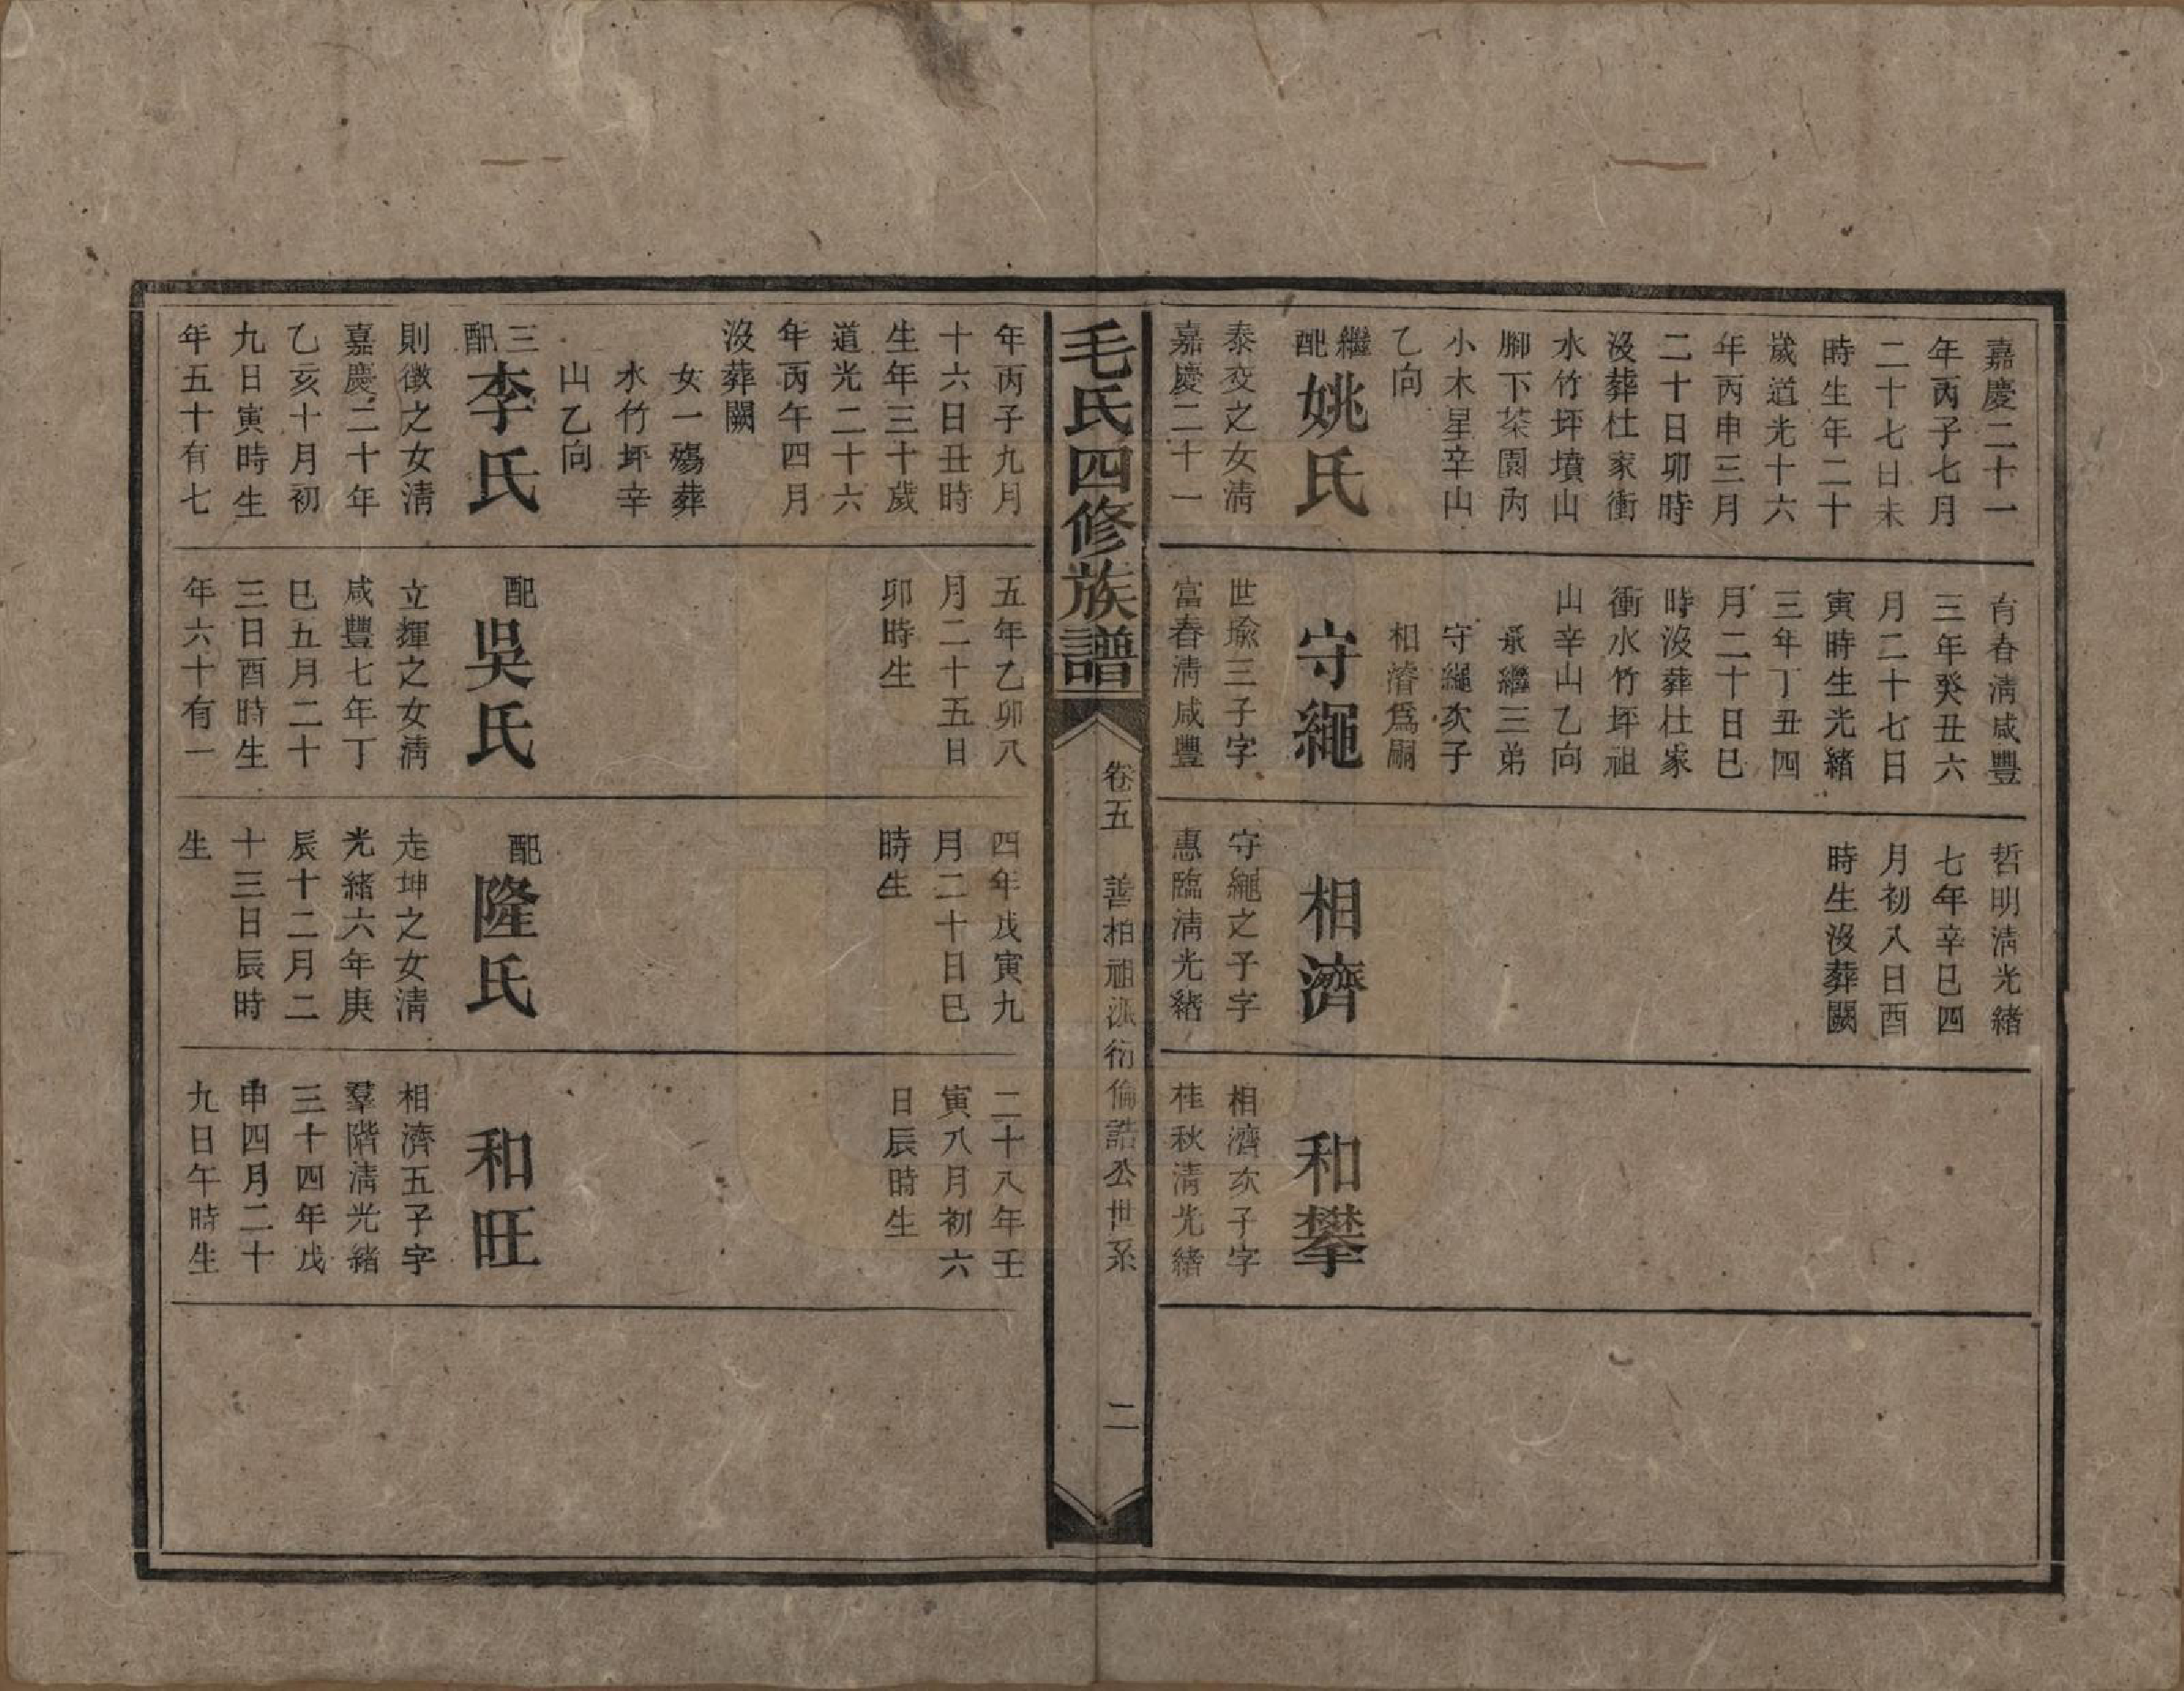 嘉慶二十一
年丙子七月
二十七日未
時生年二十
歲道光十六
年丙申三月
二十日卯時
沒葬杜家衝
水竹坪墳山
腳下茶園內
小木星辛山
乙向
繼配姚氏
泰交之女淸
嘉慶二十一
肯春淸咸豐
三年癸丑六
月二十七日
寅時生光緖
三年丁丑四
月二十日巳
時沒葬杜家
衝水竹坪祖
山辛山乙向
承繼三弟
守繩次子
相濬爲嗣
守繩
世瑜三子字
富春淸咸豐
哲明淸光緖
七年辛巳四
月初八日酉
時生沒葬闕
相濟
守繩之子字
惠臨淸光緖
和攀
相濟次子字
桂秋淸光緖
毛氏四修族譜
卷五 善柏祖派衍倫誥公世系 二
年丙子九月
十六日丑時
生年三十歲
道光二十六
年丙午四月
沒葬闕
女一殤葬
水竹坪辛
山乙向
三配李氏
則徵之女淸
嘉慶二十年
乙亥十月初
九日寅時生
年五十有七
五年乙卯八
月二十五日
卯時生
配吳氏
立揮之女淸
咸豐七年丁
巳五月二十
三日酉時生
年六十有一
四年戊寅九
月二十日巳
時生
配隆氏
走坤之女淸
光緖六年庚
辰十二月二
十三日辰時
生
二十八年壬
寅八月初六
日辰時生
和旺
相濟五子字
羣階淸光緖
三十四年戊
申四月二十
九日午時生